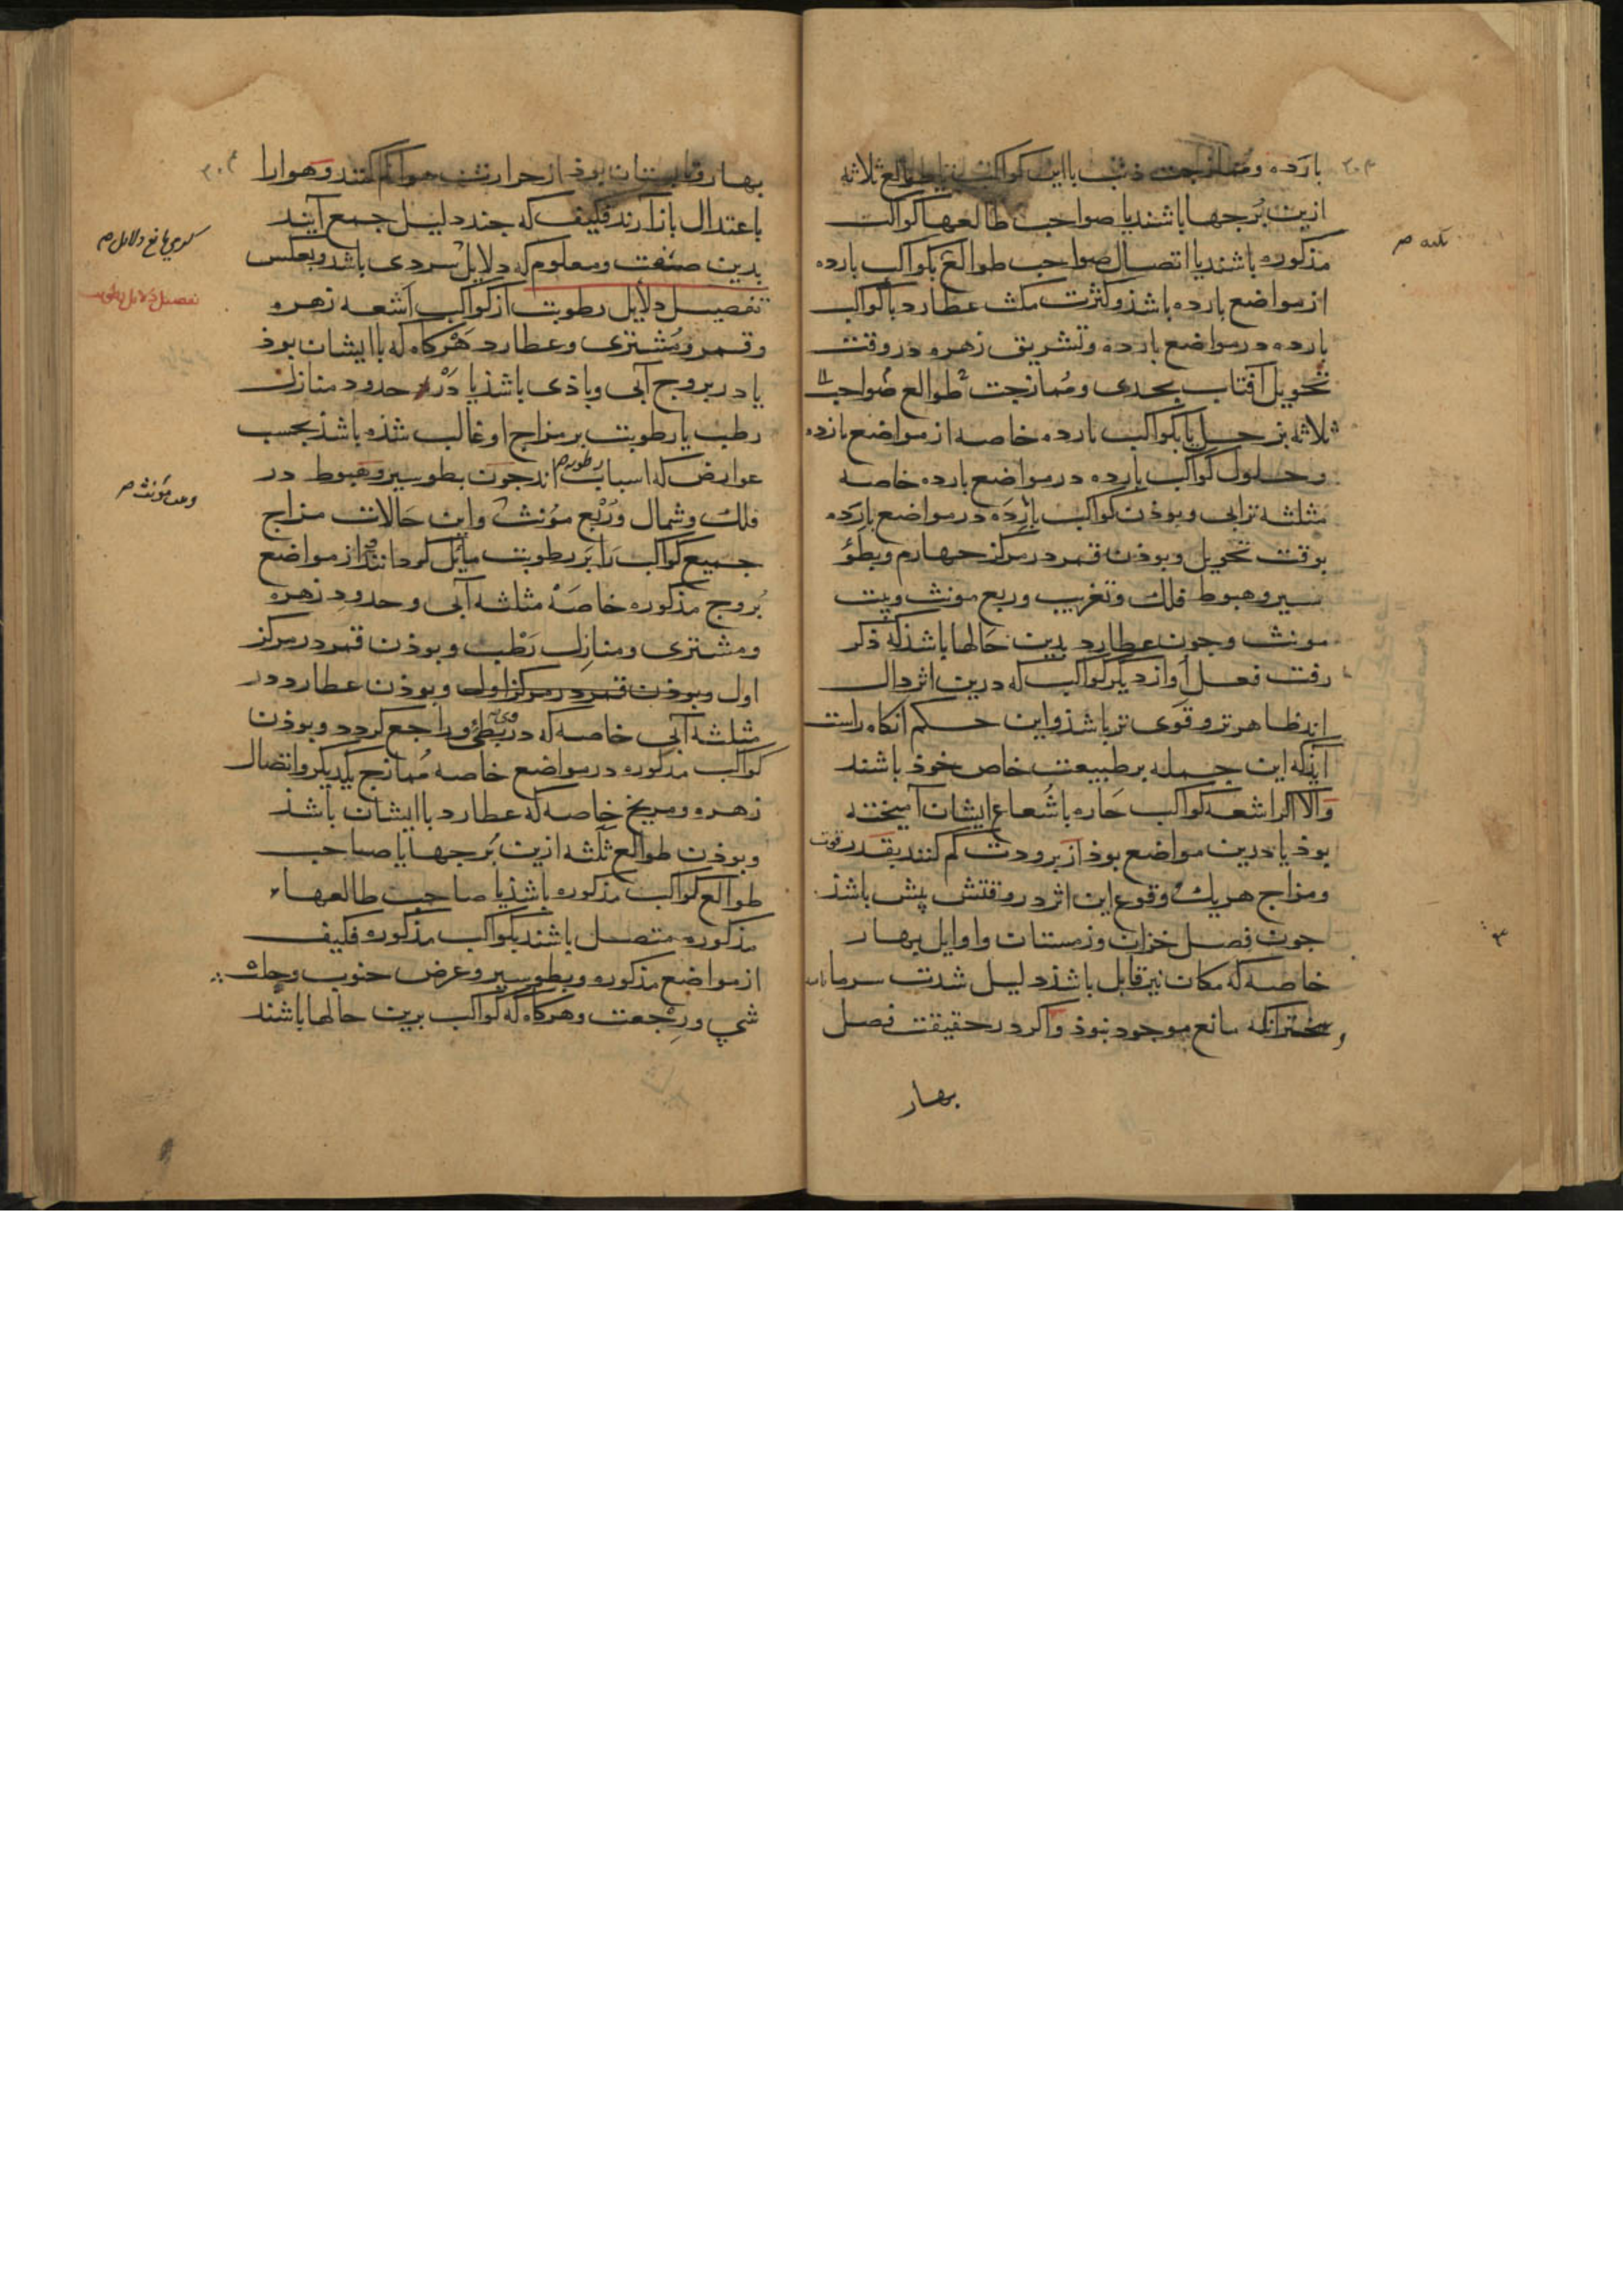 بارده وممازجت ذنب بااین کواکب یا طوالع ثلاثه
ازین برجها باشند یا صواحب طالعها کواکب
مذکوره باشند یا اتصال صواحب طوالع بکواکب بارده
از مواضع بارده باشذ وکثرت مکث عطارد باکواکب
بارده در مواضع بارده وتشریق زهره در وقت
تحویل آفتاب بجدی وممازجت طوالع صواحب
ثلاثه بزحل یا بکواکب بارده خاصه از مواضع بارده
وحلول کواکب بارده در مواضع بارده خاصه
مثلثه ترابی وبوذن کواکب بارده در مواضع بارده
بوقت تحویل وبوذن قمر در مرکز جهارم وبطؤ
سیر وهبوط فلک وتغریب وربع مونث وبیت
مونث وجون عطارد بدین حالها باشذ که ذکر
رفت فعل او از دیکر کواکب که درین اثر دال
اند ظاهرتر وقوی تر باشذ واین حکم آنکاه راست
آیذ که این جمله بر طبیعت خاص خوذ باشند
والا اکر اشعه کواکب حاره باشعاع ایشان آمیخته
بوذ یا درین مواضع بوذ از برودت کم کنند بقدر قوت
ومزاج هریک وقوع این اثر در وقتش پیش باشذ
جون فصل خزان وزمستان واوایل بهار
خاصه که مکان نیز قابل باشذ دلیل شدت سرما
انکه مانع موجود نبوذ واکر در حقیقت فصل
بهار
بهار وتابستان بوذ از حرارت هوا کم کنند وهوا را
باعتدال باز آرند فکیف که جند دلیل جمع آیند
بدین صفت ومعلوم که دلایل سردی باشد وبعکس
تفصیل دلایل رطوبت از کواکب اشعه زهره
وقمر ومشتری وعطارد هرکاه که باایشان بوذ
یا در بروج آبی وباذی باشذ یا در حدود منازل
رطب یا رطوبت بر مزاج او غالب شذه باشذ بحسب
عوارض که اسباب رطوبه اند جون بطو سیر وهبوط در
فلک وشمال وربع مؤنث واین حالات مزاج
جمیع کواکب را بر رطوبت مایل کرداند از مواضع
بروج مذکوره خاصه مثلثه آبی وحدود زهره
ومشتری ومنازل رطب وبوذن قمر در مرکز
اول وبوذن قمر در مرکز اول وبوذن عطارد در
مثلثه آبی خاصه که در وی بطئ وراجع کردد وبوذن
کواکب مذکوره در مواضع خاصه ممازج یکدیکر واتصال
زهره ومریخ خاصه که عطارد باایشان باشذ
وبوذن طوالع ثلثه ازین برجها یا صاحب
طوالع کواکب مذکوره باشذ یا صاحب طالعهاء
مذکوره متصل باشند بکواکب مذکوره فکیف
از مواضع مذکوره وبطو سیر وعرض جنوب
ورجعت وهرکاه که کواکب برین حالها باشند
تفصیل دلایل رطوبت